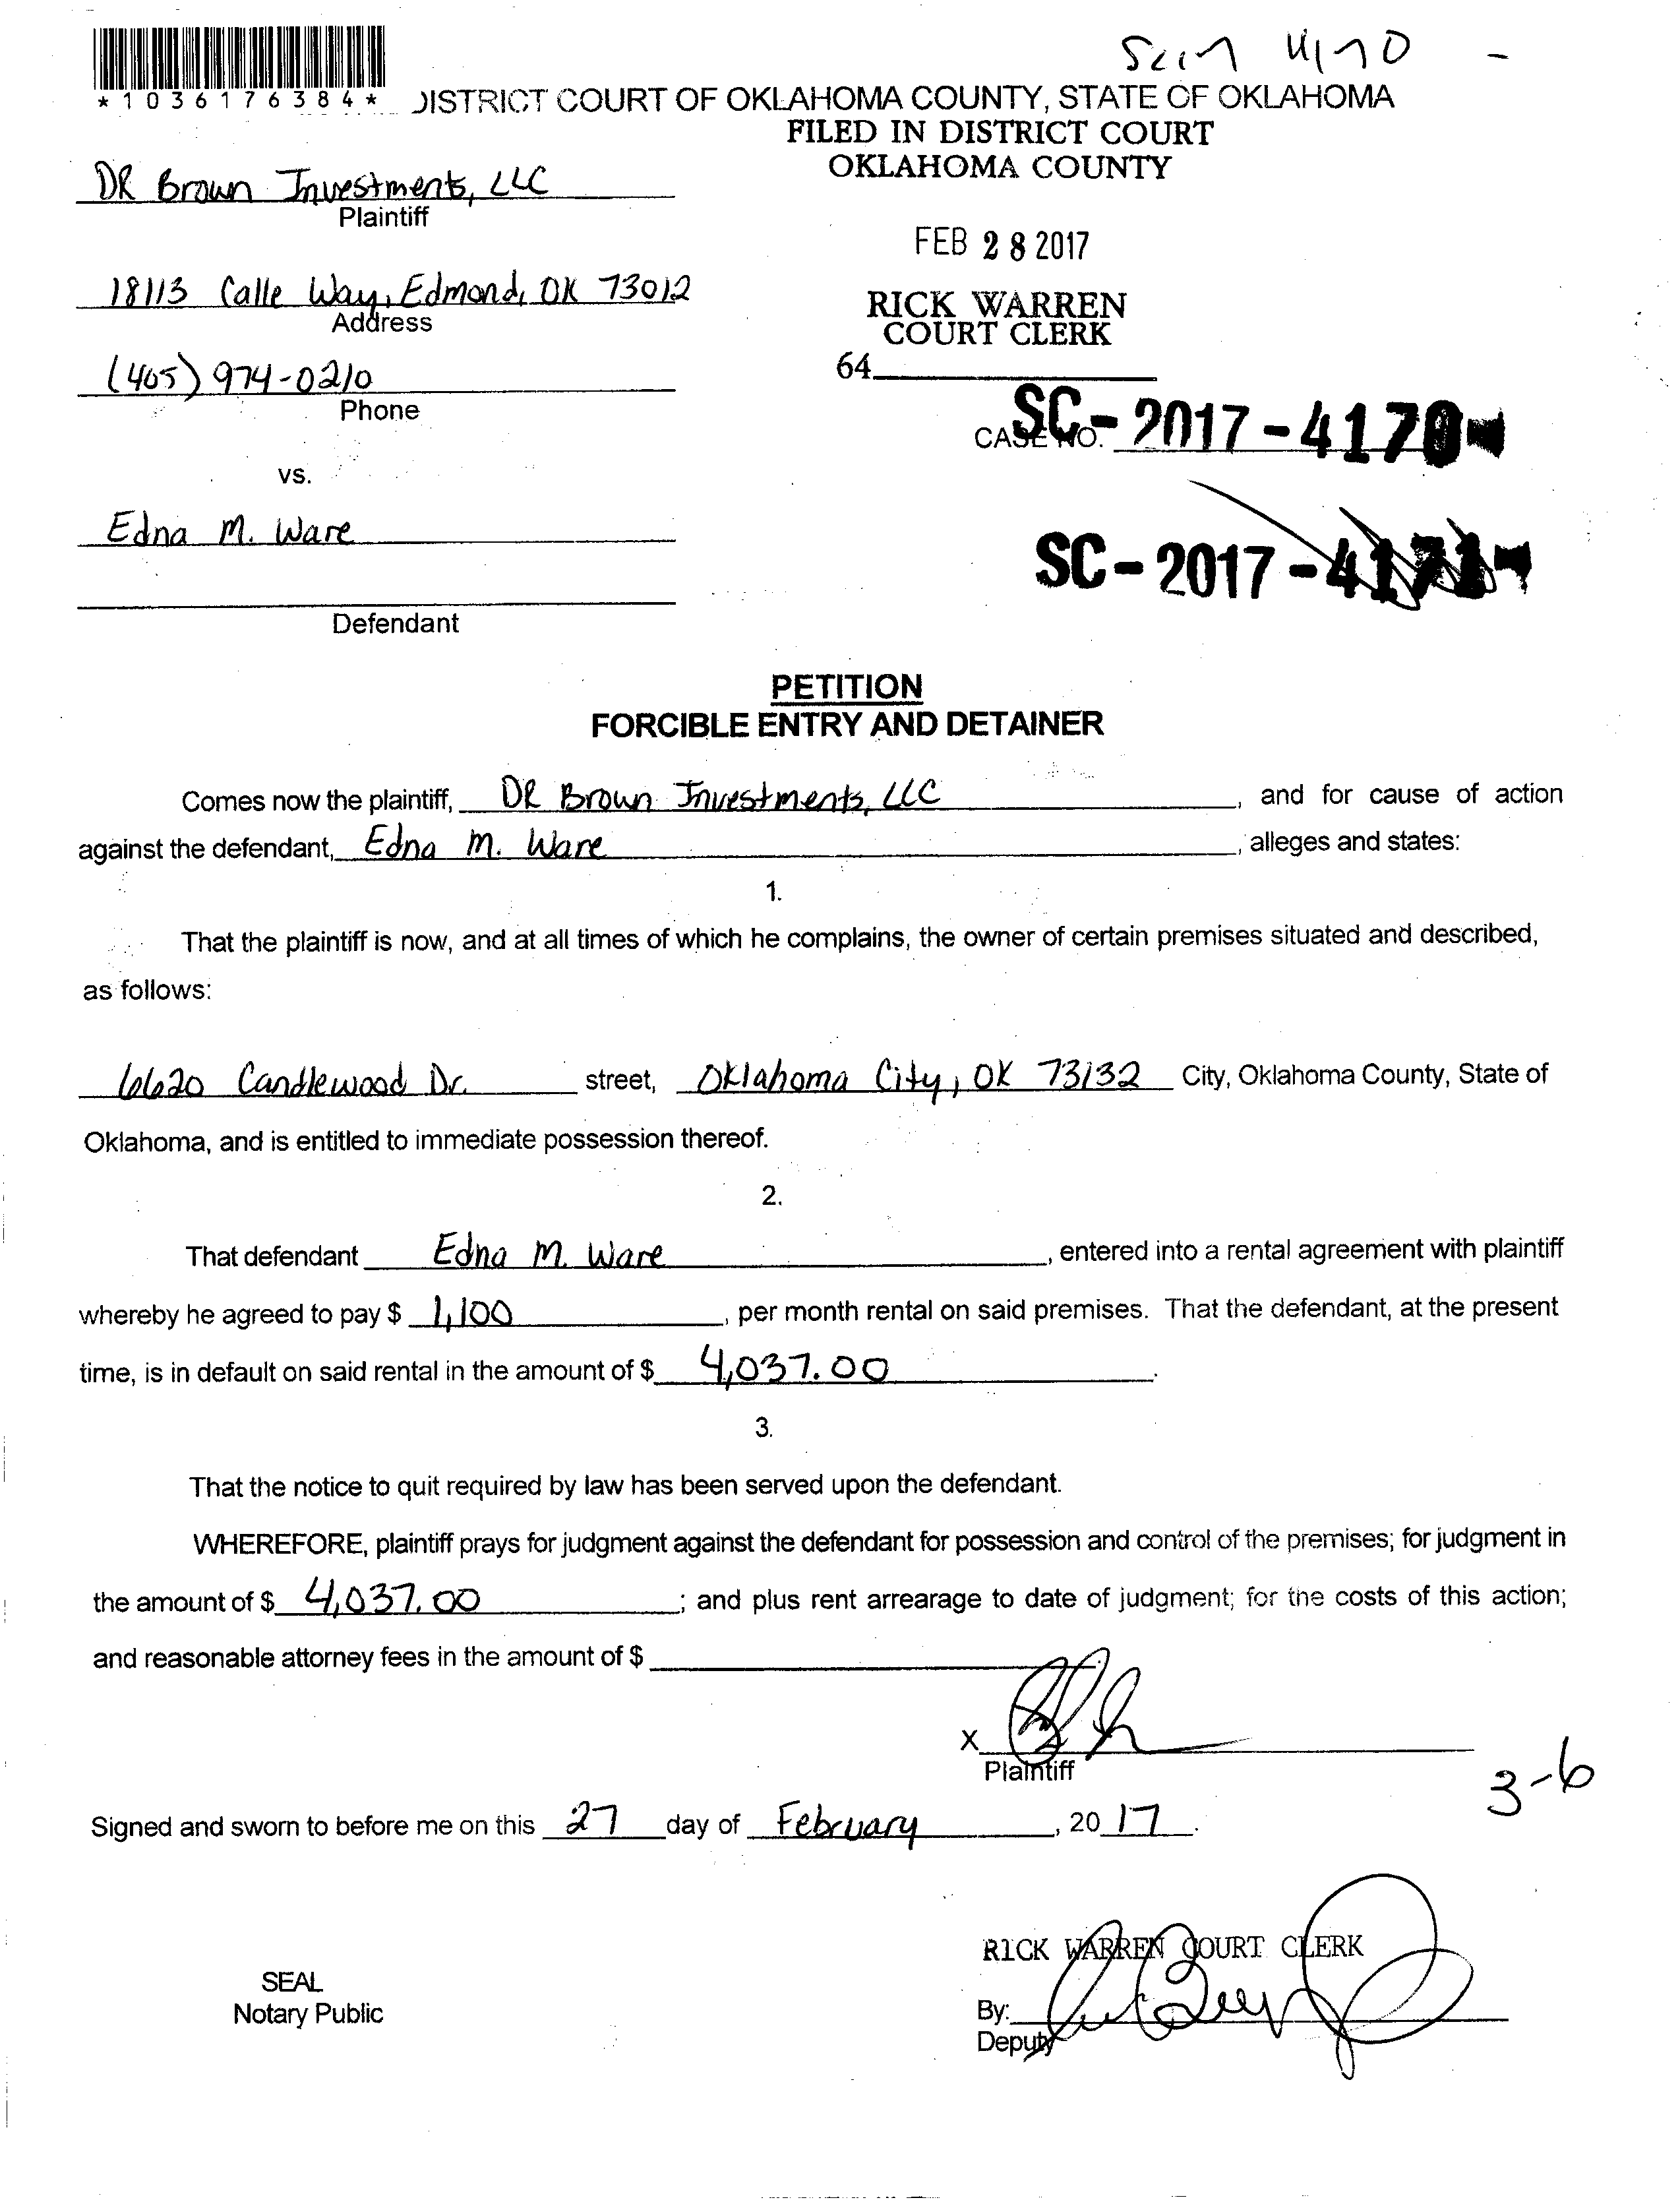 *1036176384*
DISTRICT COURT OF OKLAHOMA COUNTY, STATE OF OKLAHOMA
FILED IN DISTRICT COURT
OKLAHOMA COUNTY
DR Brown Investments, LLC
Plaintiff
FEB 28 2017
18113 Calle Way, Edmond, OK 73012
Address
RICK WARREN
COURT CLERK
64
(405) 974-0210
Phone
CASE NO. SC-2017-4170
vs.
Edna M. Ware
SC-2017-
Defendant
PETITION
FORCIBLE ENTRY AND DETAINER
Comes now the plaintiff, DR Brown Investments, LLC, and for cause of action
against the defendant, Edna M. Ware, alleges and states:
1.
That the plaintiff is now, and at all times of which he complains, the owner of certain premises situated and described,
as follows:
6620 Candlewood Dr. street, Oklahoma City, OK 73132 City, Oklahoma County, State of
Oklahoma, and is entitled to immediate possession thereof.
2.
That defendant Edna M. Ware, entered into a rental agreement with plaintiff
whereby he agreed to pay $ 1,100, per month rental on said premises. That the defendant, at the present
time, is in default on said rental in the amount of $ 4,037.00.
3.
That the notice to quit required by law has been served upon the defendant.
WHEREFORE, plaintiff prays for judgment against the defendant for possession and control of the premises; for judgment in
the amount of $ 4,037.00; and plus rent arrearage to date of judgment; for the costs of this action;
and reasonable attorney fees in the amount of $
X
Plaintiff
3-6
Signed and sworn to before me on this 27 day of February, 2017.
RICK WARREN COURT CLERK
SEAL
Notary Public
By:
Deputy